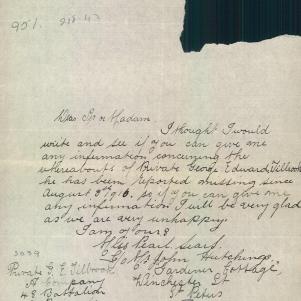 Dear Sir or Madam
I thought I would
write and see if you can give me
any information concerning the
whereabouts of Private George Edward Tilbrook
he has been reported missing since
August 8th 16. so if you can give me
any information I will be very glad
as we are very unhappy.
I am yours
Miss Pearl
C/o Mrs John Hutchings
3039
Private G. E Tilbrook
Gardener Cottage
A Company
Winchester St
48 Battalion
St Peters